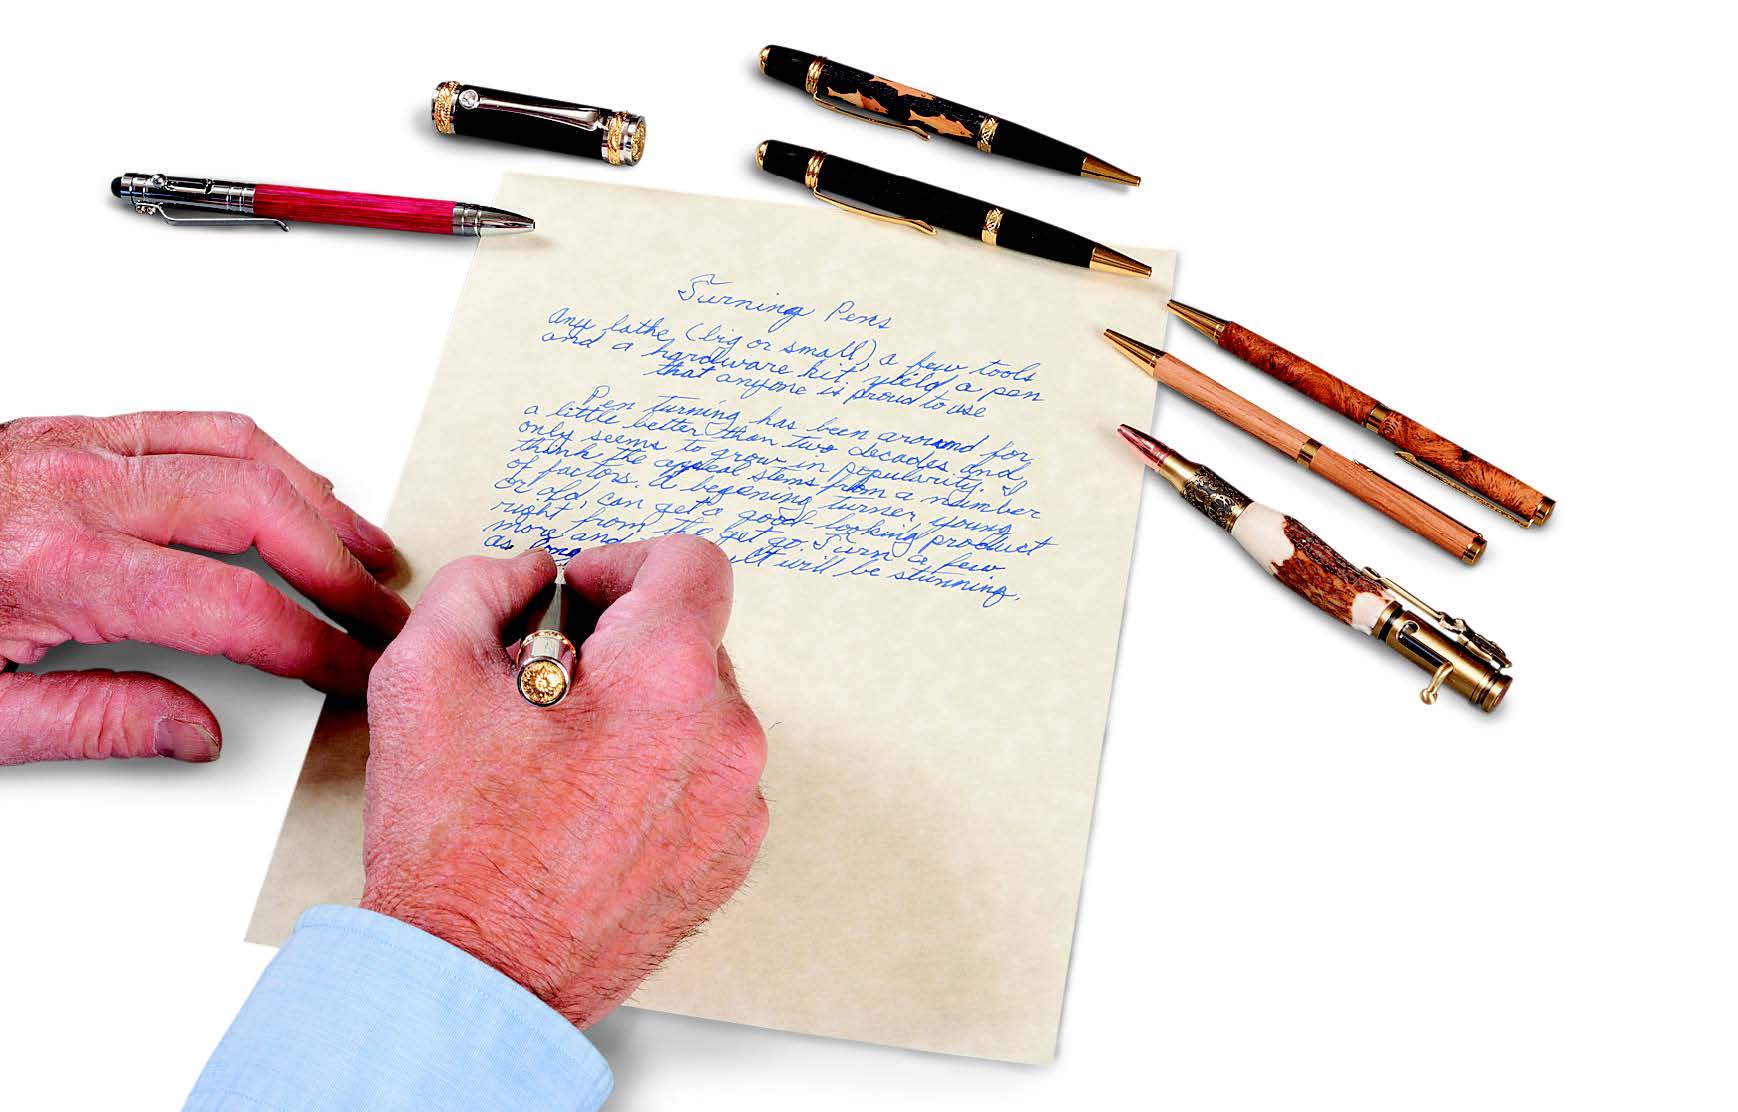 Turning Pens
Any lathe (big or small), a few tools
and a hardware kit, yield a pen
that anyone is proud to use
Pen turning has been around for
a little better than two decades and
only seems to grow in popularity. I
think the appeal stems from a number
of factors. A begening turner, young
or old, can get a good-looking product
right from the get go. Turn a few
more and will be stunning.
as long